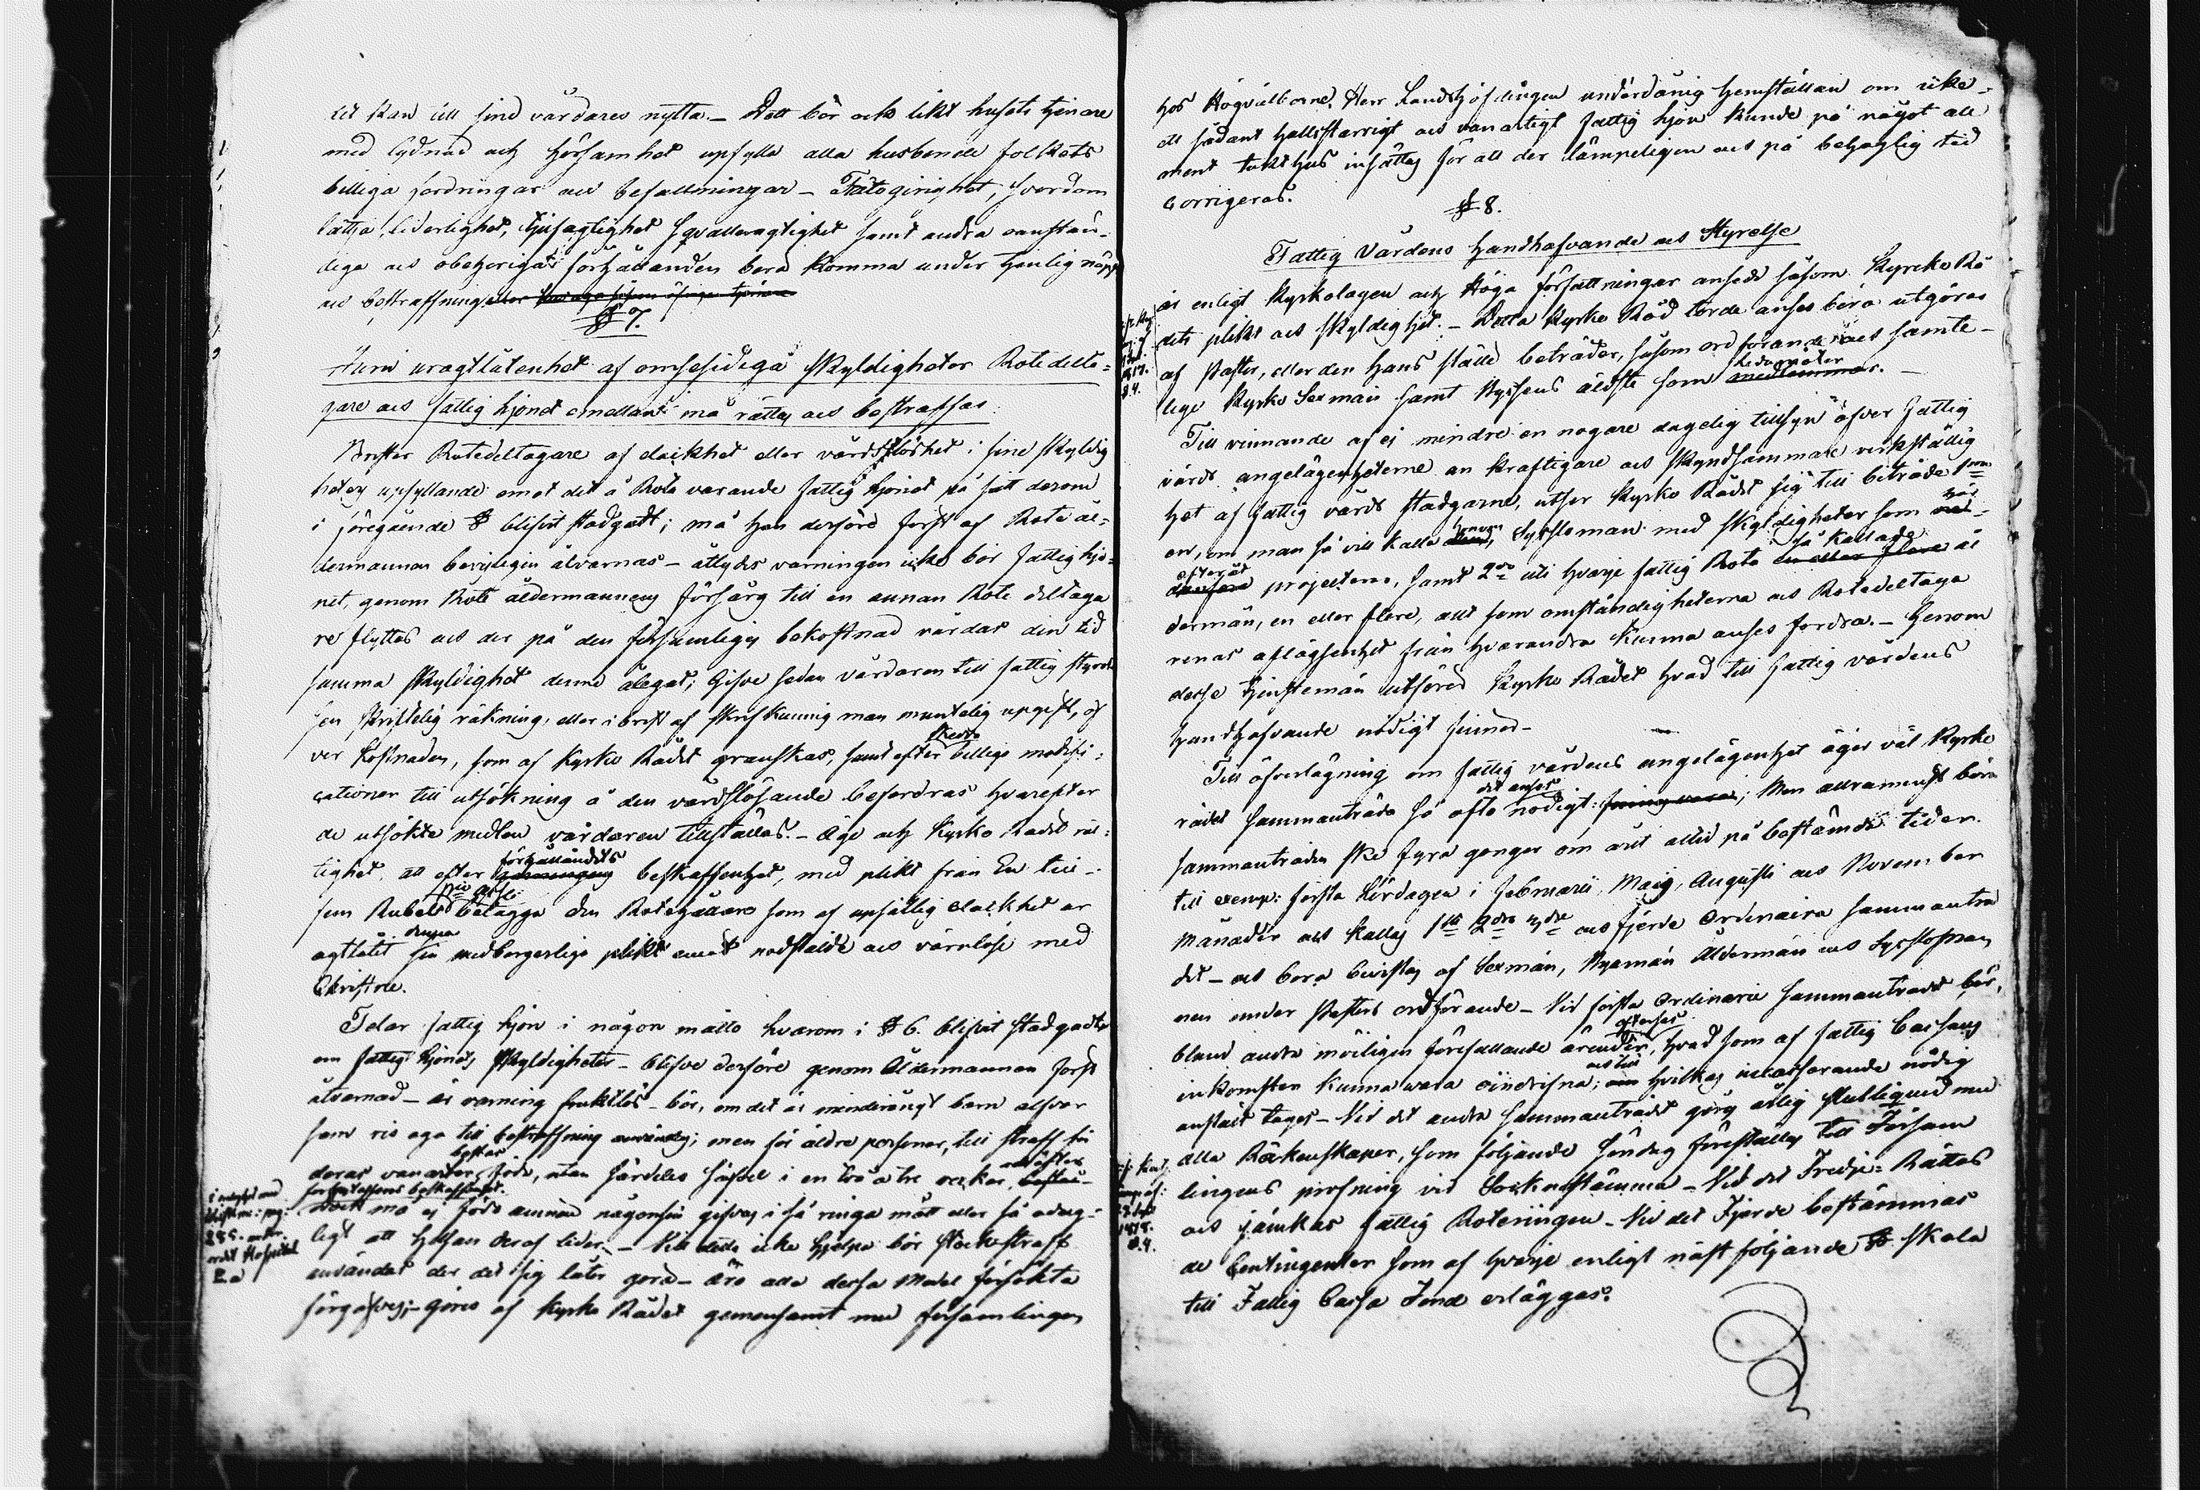 det kan till sind vårdares nytta. – Dett bör ock likt husets tjenare
med lydnad och hörsamhet upfylla alla husbonde folkets
billiga fordringar och befallningar – Fåtogirighet, svordom
lättja, liderlighet, tjufaglighet sqvalleragtighet samt andra oanstän-
diga och obehöriga förhållanden böra komma under henlig näpst
och bestraffning
§ 7.
Huru uragtlåtenhet af ömsesidiga skyldigheter Rotedelta-
gare och fattig hjonet emellan må rättas och bestraffas.
Brister Rotedeltagare af elakhet eller vårdslöshet i sine skyldig
heters upfyllande emot det å Rote varande fattig hjonet på sätt derom
i föregående § blifvit stadgadt; må han derföre först af Rote ål-
dermannen beviseligen åtvarnas – åtlydes varningen icke bör fattig hjo-
net, genom Rote åldermannens försorg till en annan Rote deltaga
re flyttas och der på den försumliges bekostnad vårdas den tid
samma skyldighet denne ålegat; Gifve sedan vårdaren till fattig styrel-
sen skriftelig räkning, eller i brist af skrifkunnig man muntelig upgift, öf
ver kostnaden, som af Kyrko Rådet granskas, samt efter skedde billiga modifi-
cationer till utsökning å den vårdslösande befordras hvarefter
de utsökte medlen vårdaren tillställas. – Äge och Kyrko Rådet rät-
tighet, att efter förhållandets beskaffenhet, med plikt från En till
fem Rubel belägga den Rotehållare som af upsåtlig elakhet ur
agtlåtit denna sin medborgerliga plikt emot nödstälde och värnlöse med
Christne.
Felar fattig hjon i någon måtto hvarom i § 6. blifvit stadgadt
om fattig hjonets skyldigheter – blifve derföre genom Åldermannen först
åtvarnad – är varning fruktlös – bör, om det är minderårigt barn alfvar
sam ris aga till bestraffning användas; men för äldre personer, till straff för
deras vanarter, föda, utan särdeles sofvel i en två à tre veckor
Dock må ej föda ännu någonsin gifvas i så ringa mått eller så odug-
ligt att helsan deraf lider. – Vill detta icke hjelpa bör stockstraff
användas der det sig låter göra – Äro alla dessa medel försökta
förgäfves; – göres af Kyrko Rådet gemensamt med församlingen
hos Högvälborne Herr Landshöfdingen underdånig hemställan om icke
ett sådant hallstarrigt och vanartigt fattig hjon kunde på något all
ment tukthus insättas för att der lämpeligen och på behaglig tid
corrigeras.
§ 8.
Fattig Vårdens handhafvande och Styrelse
är enligt Kyrkolagen och Höga författningar ansedt såsom Kyrcko Rå
dets plikt och skyldighet. – Detta Kyrko Råd torde anses böra utgöras
af Pastor, eller den hans ställe beträder, såsom ordförande och samte-
lige Kyrko Sexmän samt Kyssens äldste som Ledamöter
Till vinnande af ej mindre en nogare dagelig tillsyn öfver fattig
vårds angelägenheterne än kraftigare och skyndsammare verkställig
het af fattig vårds stadgarne, utser Kyrko Rådet sig till biträde 1mo
en, om man så vill kalla honom, Syssloman med skyldigheter som här
efteråt projecteras, samt 2do uti hvarje fattig Rote så kallade ål
dermän, en eller flere, allt som omständigheterna och Rotedeltaga
renas aflägsenhet från hvarandra kunna anses fordra. – Genom
desse tjenstemän utföres Kyrko Rådet hvad till fattig vårdens
handhafvande nödigt finnes –
Till öfverläggning om fattig vårdens angelägenhet äger väl Kyrko
rådet sammanträda så ofta det anses nödigt; Men allramenst böra
sammanträden ske fyra gånger om året alltid på bestämde tider.
till exemp: första Lördagen i Februarii, Maij, Augusti och November
Månader och kallas 1sta 2dra 3dje och fjerde Ordinaira sammanträ
det – och böra bevistas af Sexmän, Nyemän Åldermän och Sysslomannen
under Pastors ordförande – Vid första Ordinaira sammanträdet bör,
bland andra möjligen förefallande ärender, efterses hvad som af fattig Cassans
inkomster kunna vara oindrifna; och till hvilkas indrifvande nödig
anstalt tages – Vid det andra sammanträdet görs årlig slutliqvid med
alla Räkenskaper, som följande söndag föreställes till Försam
lingens pröfning vid Sockenstämma – Vid det Tredje: Rättas
och jämkas fattig Roteringen – Vid det Fjerde bestämmas
de Contingenter som af hvarje enligt näst följande § skola
till Fattig Cassa Fond erläggas.